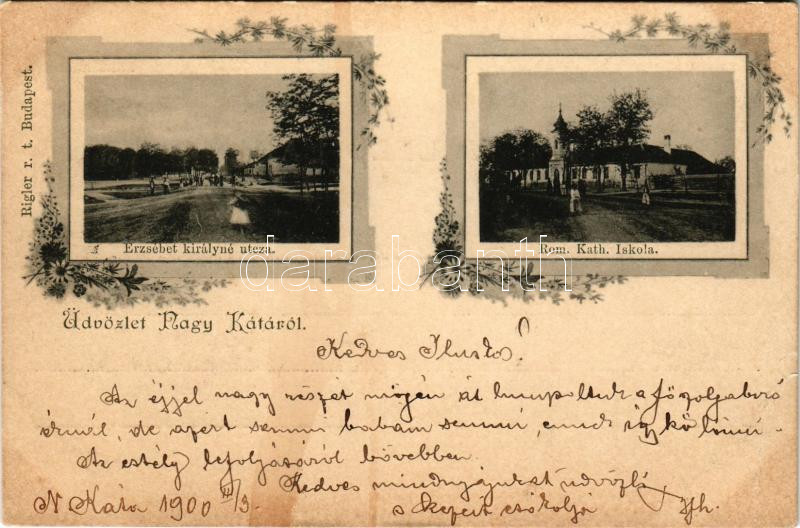 Rigler r. t. Budapest.
Erzsébet királyné utcza.
Rom. Kath. Iskola.
darabanth
Üdvözlet Nagy Kátáról.
Kedves Iluska!
Az éjjel nagy részét át a főszolgabíró
de azért semmi babám semmi, ennek így kő lenni.
Az estély lefolyásáról bővebben.
Kedves mindnyájukat üdvözli
N Káta 1900 III/3. s csókolja